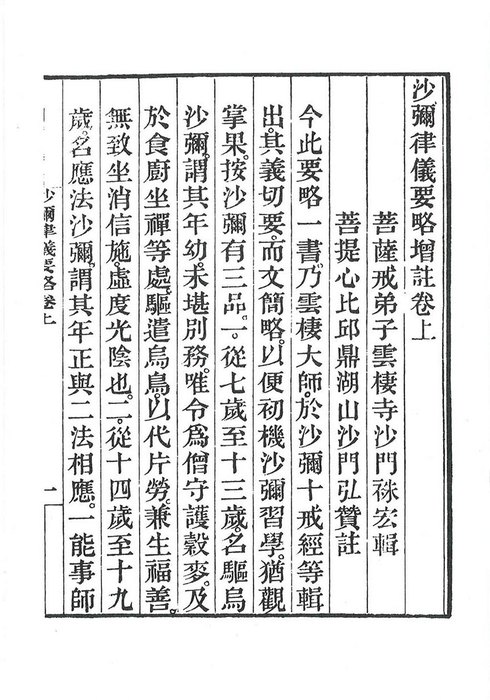 沙彌律儀要略增註卷上
菩薩戒弟子雲棲寺沙門袾宏輯
菩提心比邱鼎湖山沙門弘贊註
今此要略一書。乃雲棲大師。於沙彌十戒經等輯
出。其義切要。而文簡略。以便初機沙彌習學。猶觀
掌果。按沙彌有三品。一。從七歲至十三歲。名驅烏
沙彌。謂其年幼。未堪別務。唯令爲僧守護穀麥。及
於食廚坐禪等處。驅遣烏鳥。以代片勞。兼生福善。
無致坐消信施。虛度光陰也。二。從十四歲至十九
歲。名應法沙彌。謂其年正與二法相應。一能事師
沙彌律儀要略卷上
一